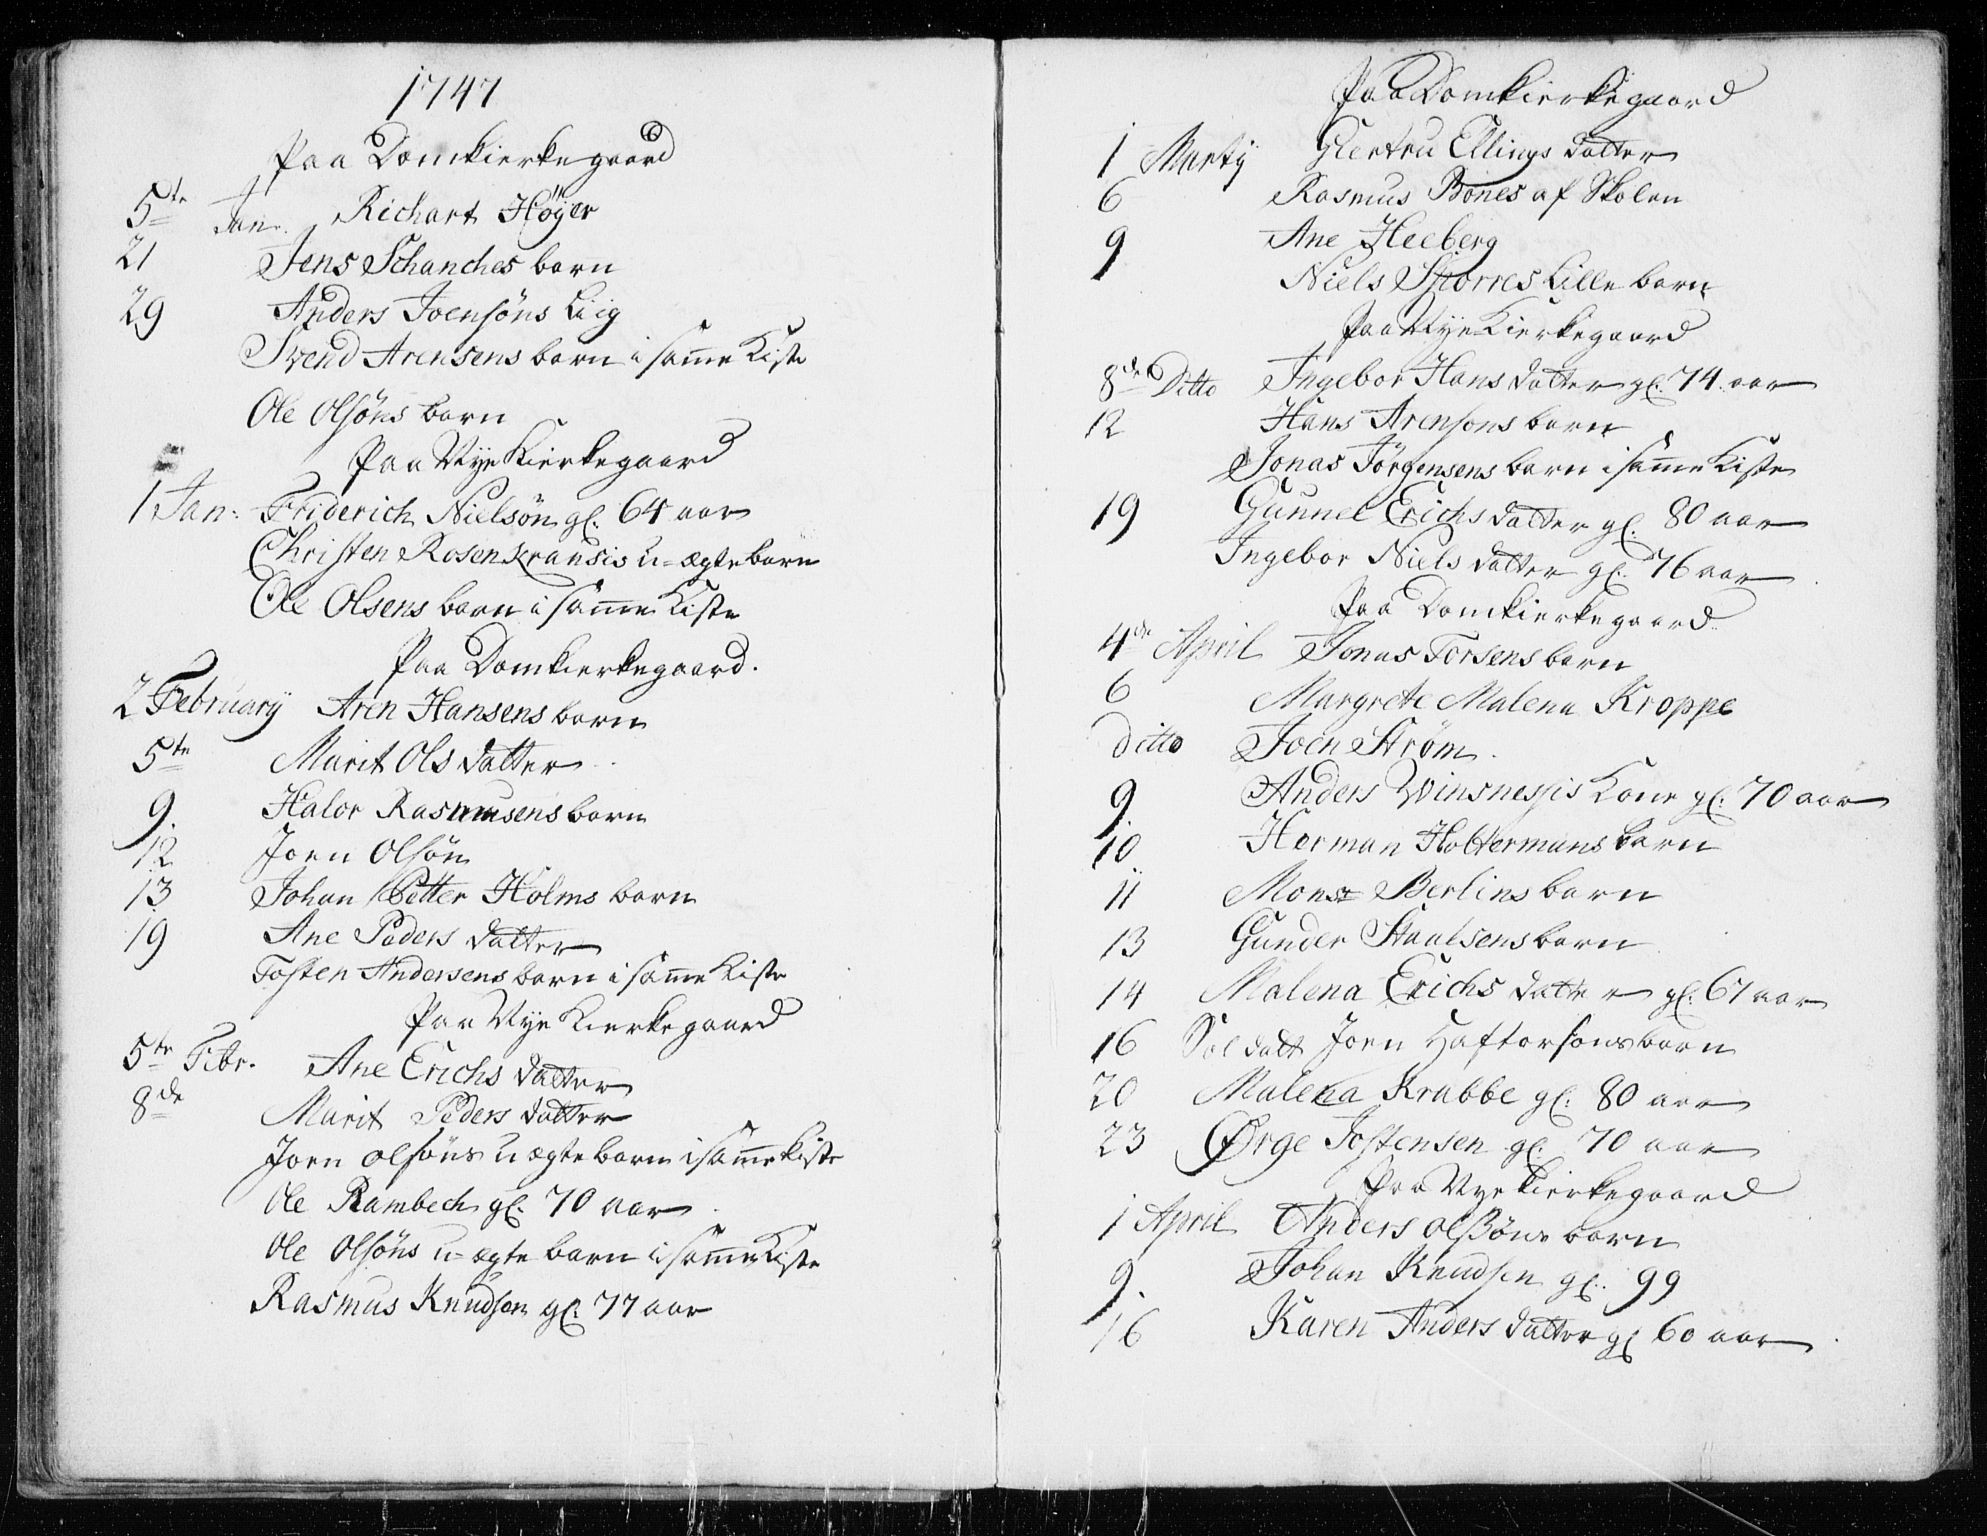 1747
Paa Domkierkegaard
5te Jan. Richart Höyer
21 Jens Schanches barn
29 Anders Joensöns Liig
Svend Arensens barn i same Kiste
Ole Olsöns barn
Paa Nye Kierkegaard
1 Jan. Friderich Nielsön gl. 64 aar
Christen Rosenkransis u-ægte barn
Ole Olsens barn i same Kiste
Paa Domkierkegaard.
2 February Aren Hansens barn
5te Marit Ols datter
9. Halor Rasmusens barn
12 Joen Olsön
13 Johan Petter Holms barn
19 Ane Peders datter
Tosten Andersens barn i same Kiste
Paa Nye Kierkegaard
5te Febr. Ane Erichs datter
8de Marit Peders datter
Joen olsöns u ægte barn i same kiste
Ole Rambech gl. 70 aar
Ole Olsöns u-ægte barn i same Kiste
Rasmus Knudsen gl. 77 aar
Paa Domkierkegaard
1 Martij Giertru Ellings datter
6 Rasmus Bones af Skolen
9 Ane Heeberg
Niels Storres Lille barn
Paa Nye Kierkegaard
8de Ditto Ingebor Hans datter gl. 74 aar
12 Hans Arensons barn
Jonas Jörgensens barn i same Kiste
19 Gunnel Erichs datter gl. 80 aar
Ingebor Niels datter gl. 76 aar
Paa Domkierkegaard
4de April Jonas Torsens barn
6 Margrete Malena Kroppe
ditto Joen Strøm.
9 Anders Winsnessis Kone gl. 70 aar
10 Herman Holtermans barn
11 Monsr Berlins barn
13 Gunder Staalsens barn
14 Malena Erichs datter gl. 67 aar
16 Soldatt Joen Haftorsons barn
20 Malena Krabbe gl. 80 aar
23 Ørge Jostensen gl. 70 aar
Paa Nye Kierkegaard
1 April Anders olsöns barn
9. Johan Knudsen gl. 99
16 Karen Anders datter gl 60 aar